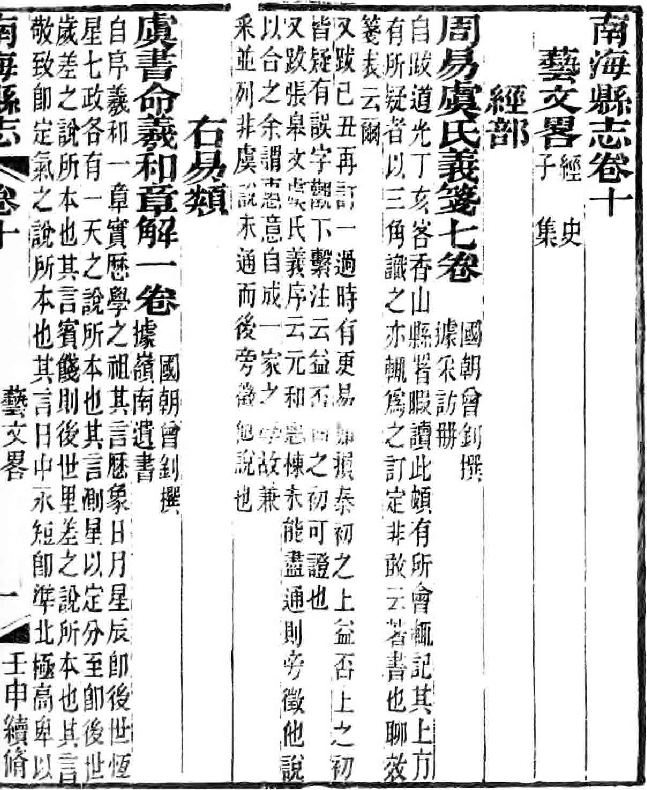 南海縣志卷十
藝文畧 經 史
子 集
經部
周易虞氏義箋七卷 國朝曾釗撰
據采訪册
自跋道光丁亥客香山縣署暇讀此頗有所會輒記其上方
有所疑者以三角識之亦輒爲之訂定非敢云著書也聊效
箋表云爾
又跋己丑再訂一過時有更易 損泰初之上益否上之初
皆疑有誤字觀下繫注云益否 之初可證也
又跋張臯文虞氏義序云元和惠棟未能盡通則旁徵他說
以合之余謂惠意自成一家之學故兼
采並列非虞說未通而後旁徵他說也
右易類
虞書命羲和章解一卷 國朝曾釗撰
據嶺南遺書
自序羲和一章實歷學之祖其言歷象日月星辰卽後世恆
星七政各有一天之說所本也其言測星以定分至卽後世
歲差之說所本也其言賓餞則後世里差之說所本也其言
敬致卽定氣之說所本也其言日中永短卽準北極高卑以
南海縣志 卷十 藝文畧 一 壬申續脩